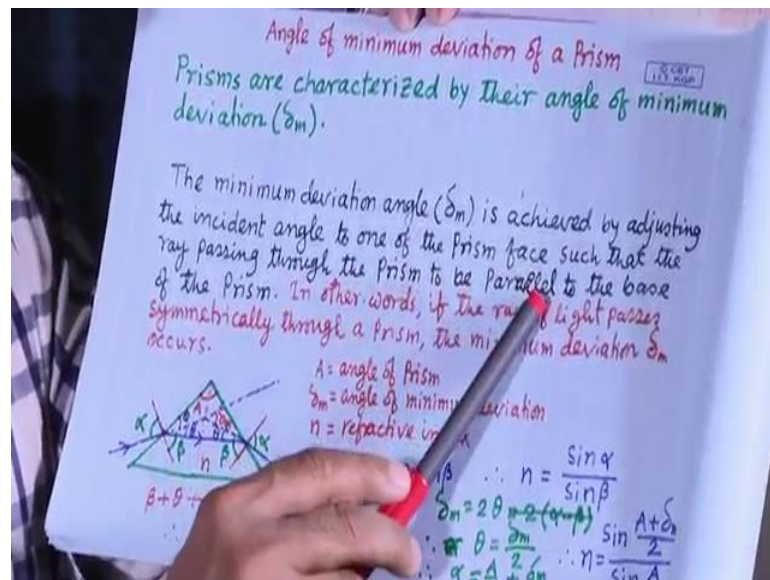 Angle of minimum deviation of a Prism
© CET
I.I.T. KGP
Prisms are characterized by their angle of minimum
deviation (δm).
The minimum deviation angle (δm) is achieved by adjusting
the incident angle to one of the Prism face such that the
ray passing through the Prism to be Parallel to the base
of the Prism. In other words, if the ray of light passes
symmetrically through a Prism, the minimum deviation δm
occurs.
A = angle of Prism
δm = angle of minimum deviation
n = refractive
A
α θ θ α
β β
n
β + θ +
β ∴ n = sin α / sin β
δm = 2θ
∴ θ = δm / 2 ∴ n = sin (A + δm) / 2
sin A
α = A + δm